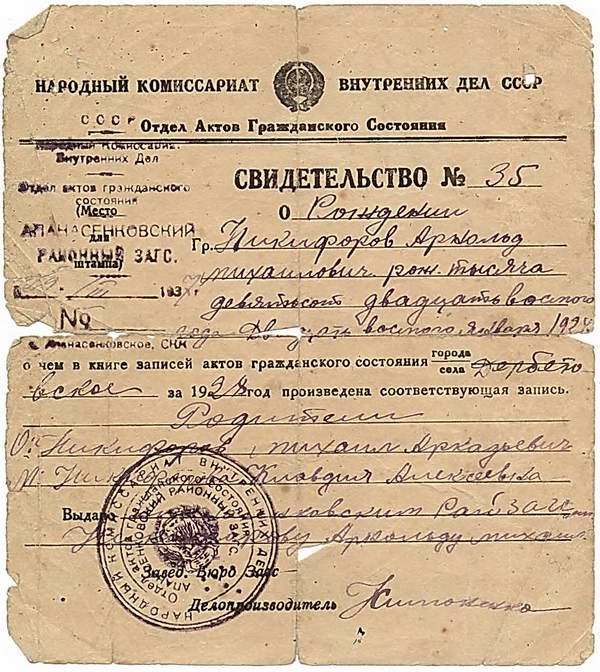 НАРОДНЫЙ КОМИССАРИАТ ВНУТРЕННИХ ДЕЛ СССР
Отдел Актов Гражданского Состояния
СССР
Народный Комиссариат
Внутренних Дел
Отдел актов гражданского
состояния
(Место
АПАНАСЕНКОВСКИЙ
для
РАЙОННЫЙ ЗАГС.
штампа)
193
№
с. Апанасенковское, СКК
СВИДЕТЕЛЬСТВО № 35
О Рождении
Гр. Никифоров Арнольд
Михаилович рож. тысяча
девятьсот двадцать восьмого
года Двадцать восьмого января 1928
о чем в книге записей актов гражданского состояния города села Дербето
вское за 1928 год произведена соответствующая запись.
Родители
От. Никифоров Михаил Аркадьевич
М. Клавдия Алексеевна
Выдано Райзагс
Арнольду Михаил
Завед. Бюро Загс
Делопроизводитель
НАРОДНЫЙ КОМИССАРИАТ ВНУТРЕННИХ ДЕЛ
Отдел актов гражданского состояния
АПАНАСЕНКОВСКИЙ РАЙОННЫЙ ЗАГС